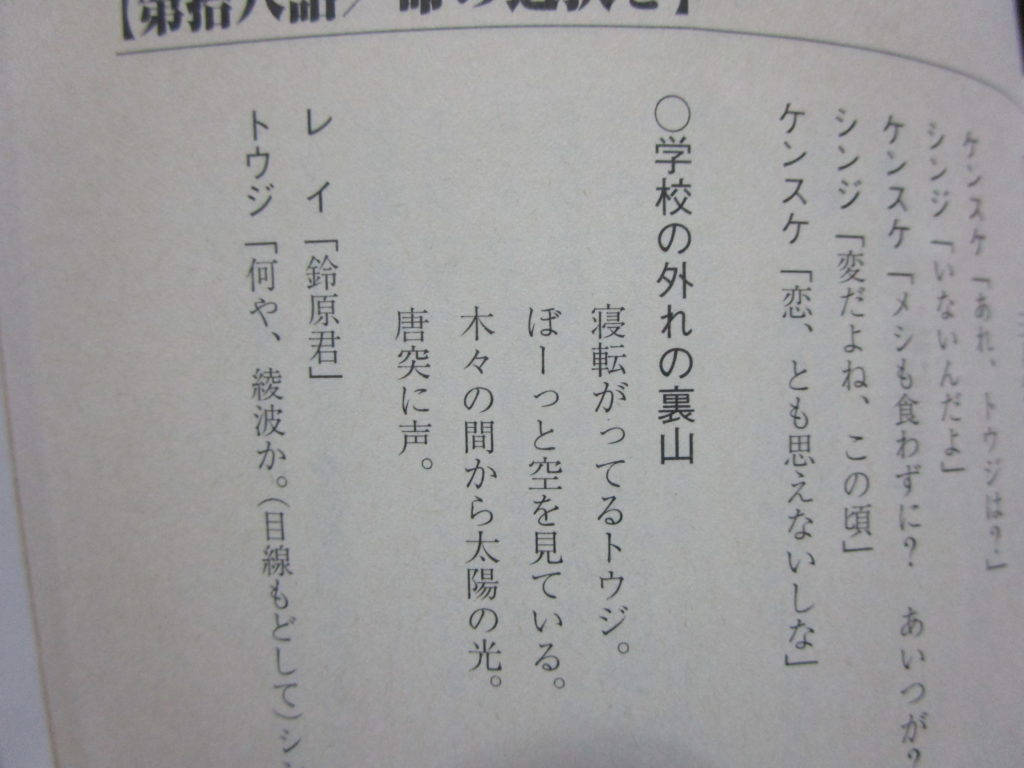 【第拾八話／命の選択を】
ケンスケ「あれ、トウジは？」
シンジ「いないんだよ」
ケンスケ「メシも食わずに？　あいつが？
シンジ「変だよね、この頃」
ケンスケ「恋、とも思えないしな」
○学校の外れの裏山
寝転がってるトウジ。
ぼーっと空を見ている。
木々の間から太陽の光。
唐突に声。
レ　イ「鈴原君」
トウジ「何や、綾波か。（目線もどして）シ